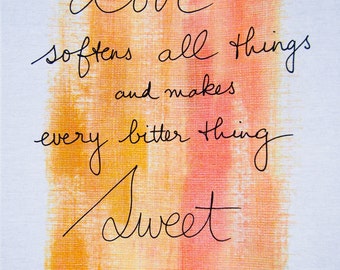 softens all things
and makes
every bitter thing
Sweet